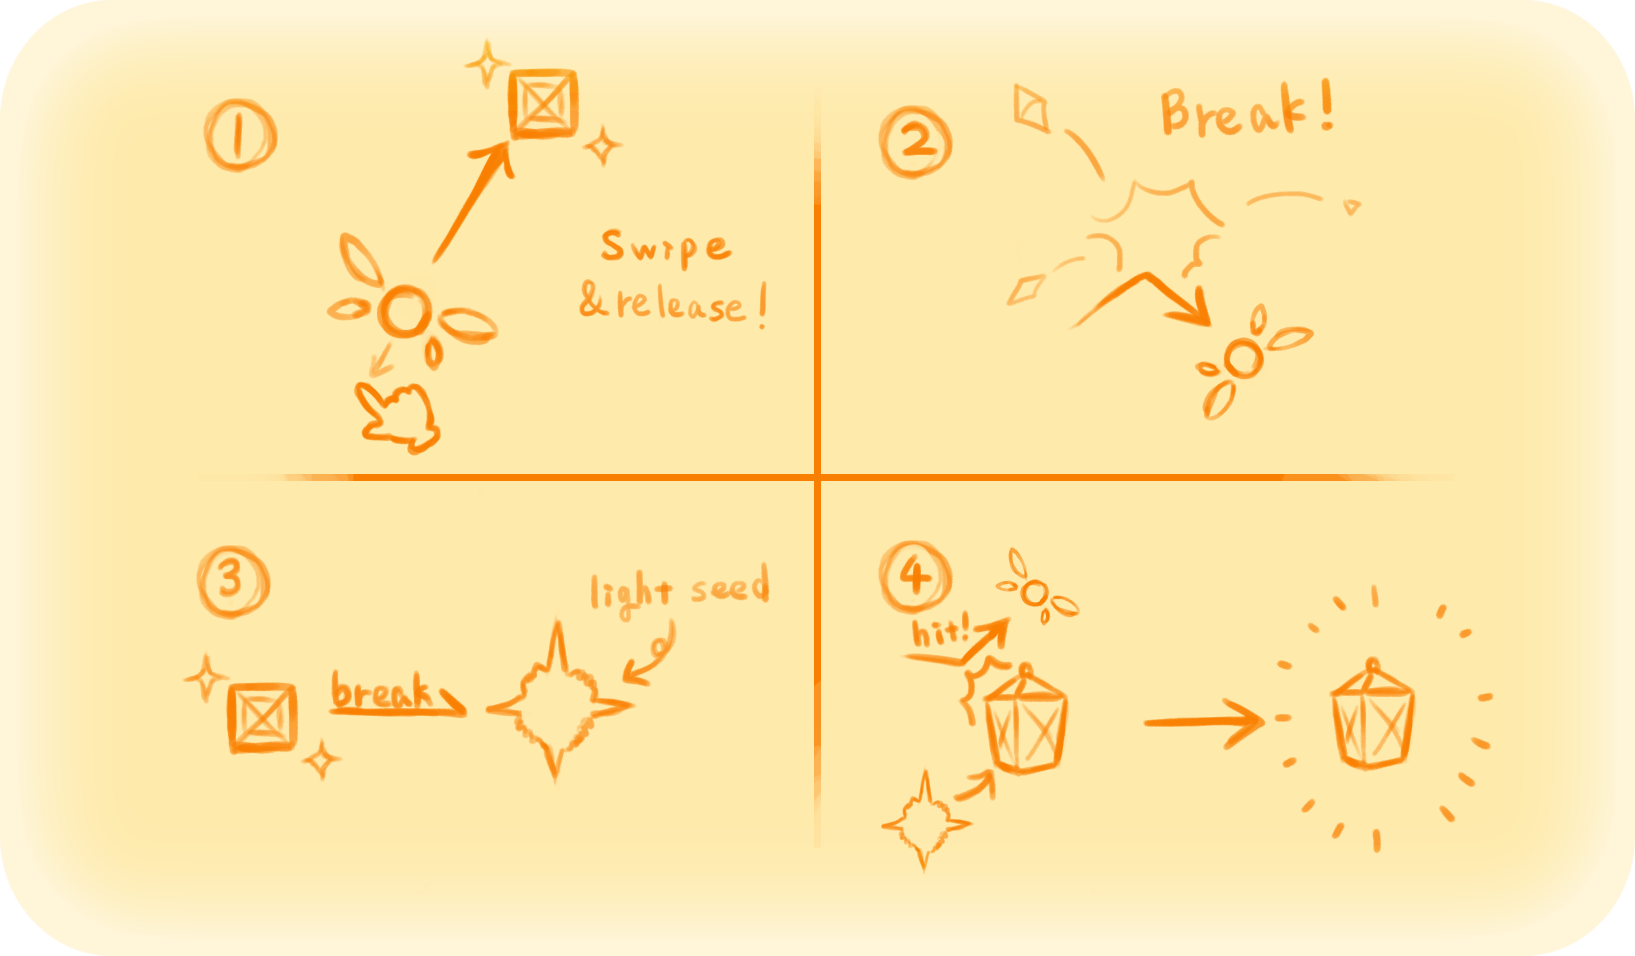 ①
Swipe
& release!
②
Break!
③
break
light seed
④
hit!